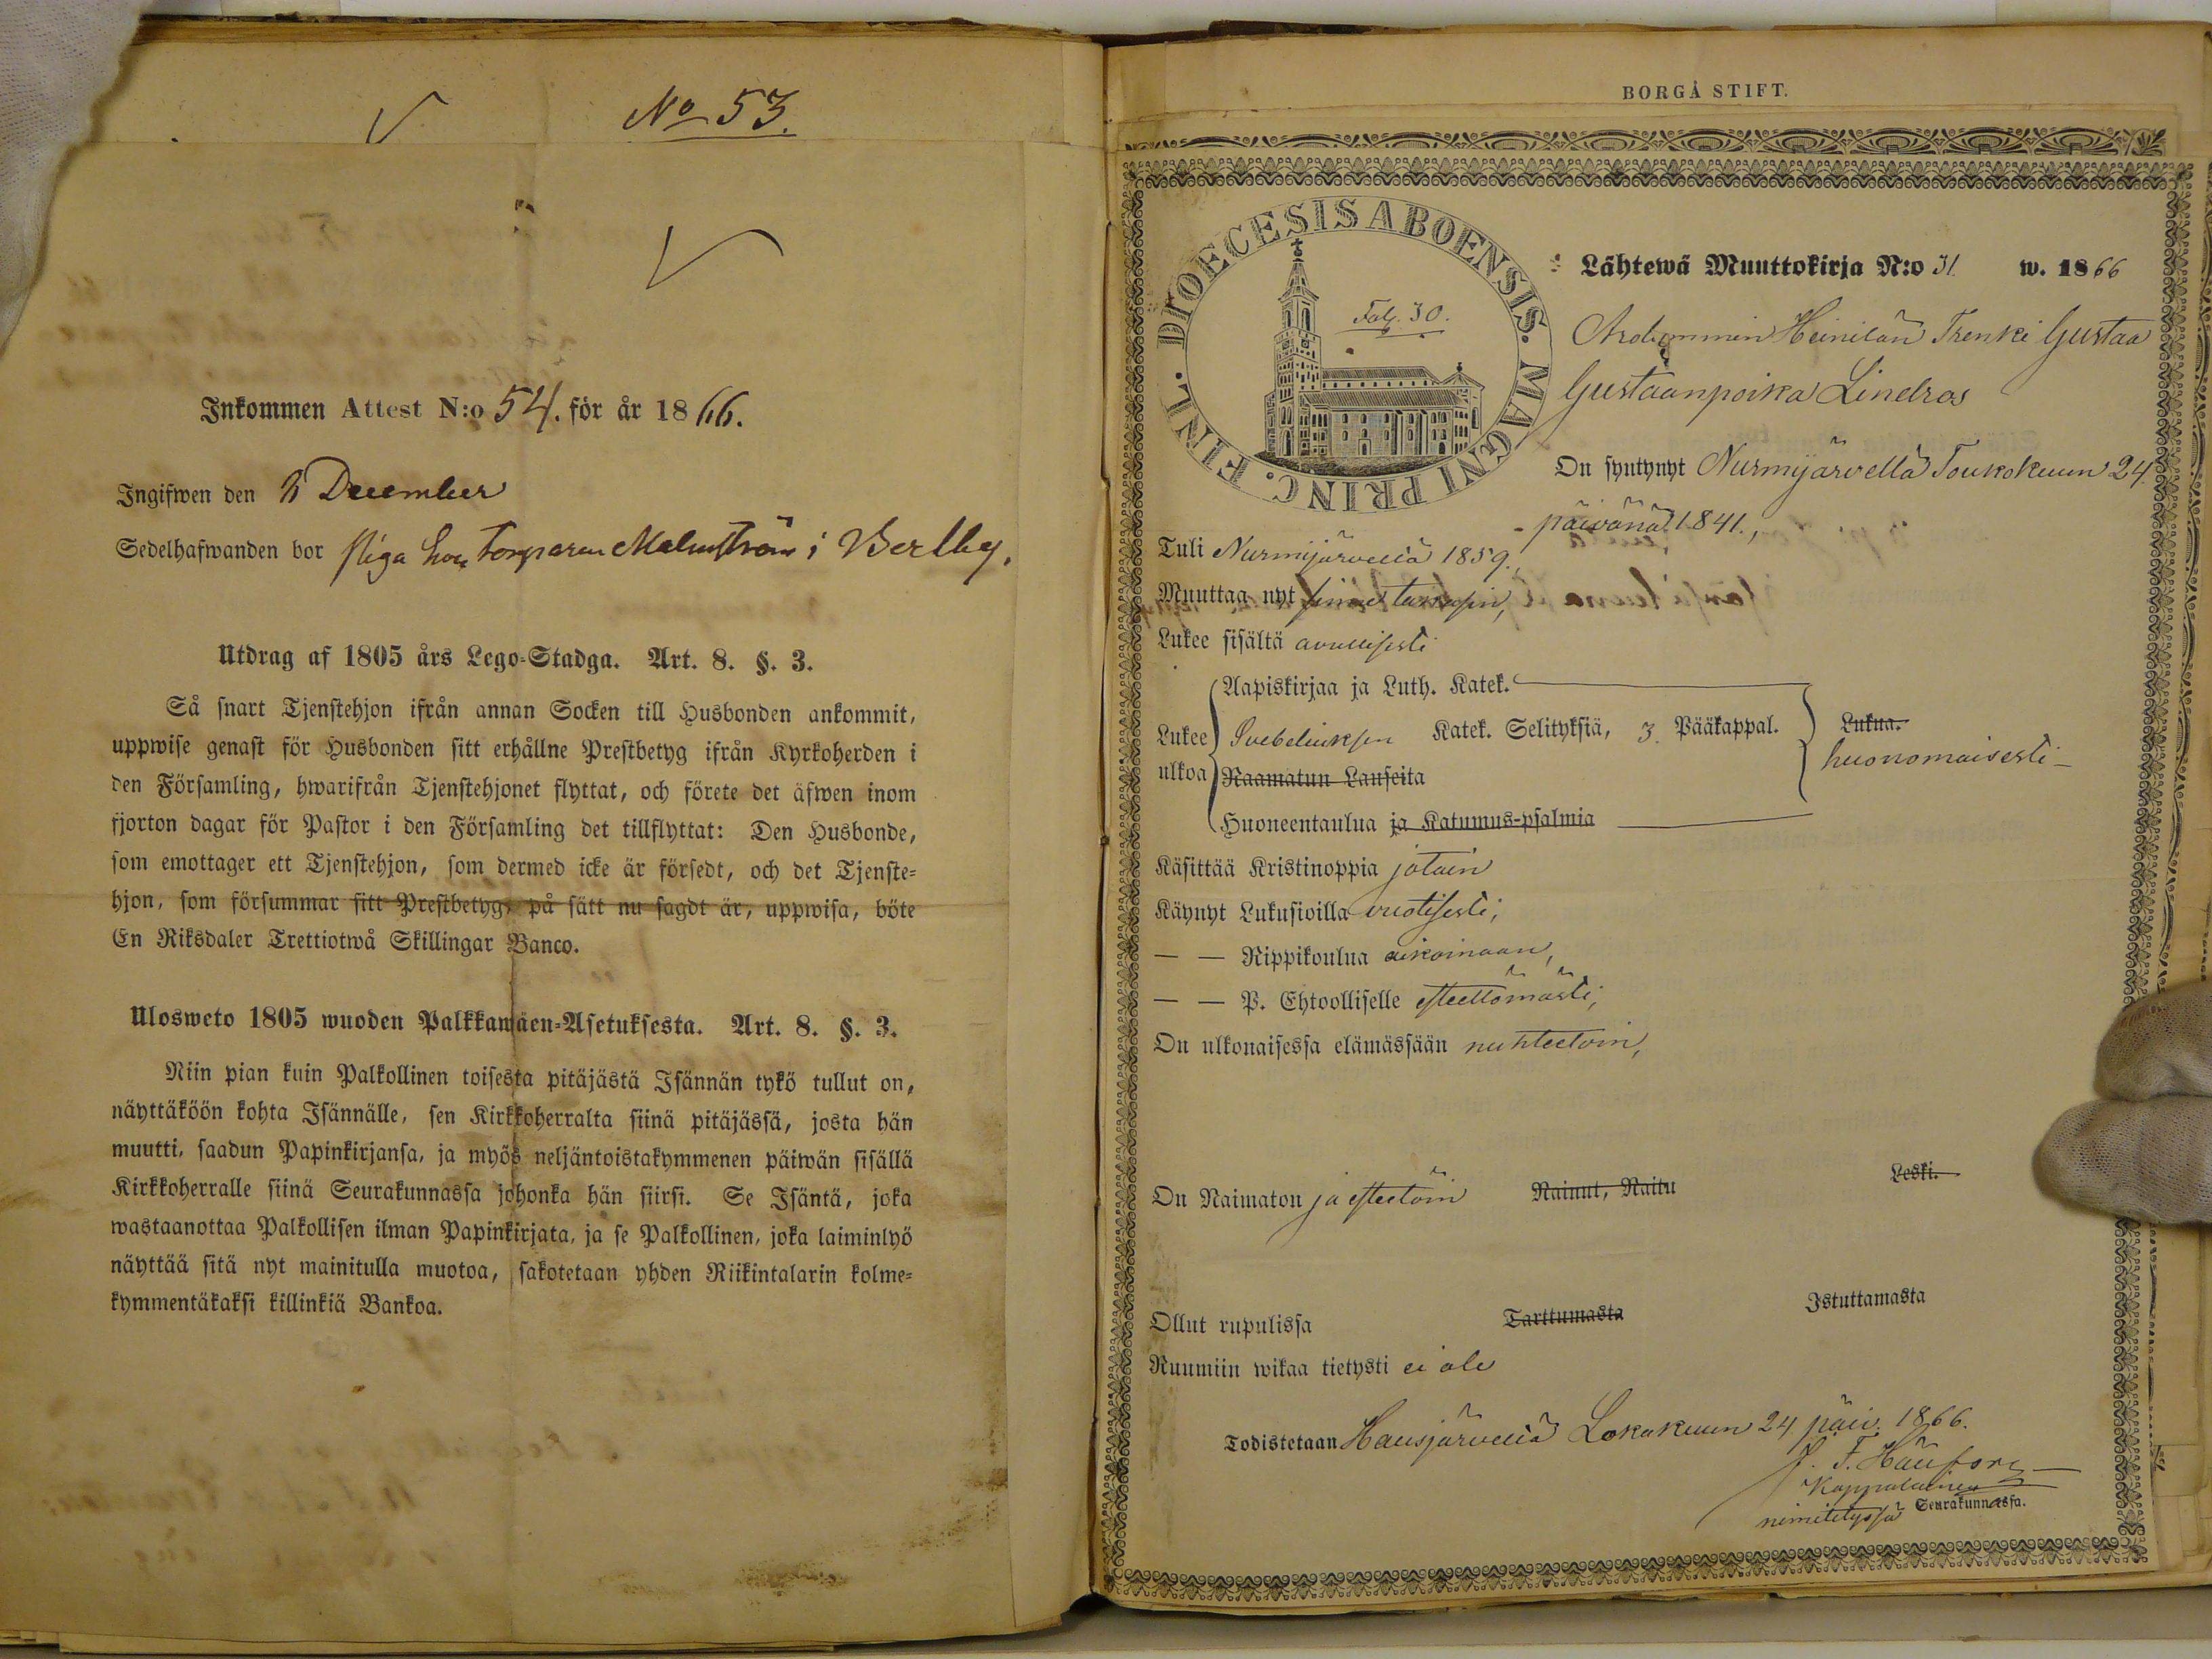 No 53.
Inkommen Attest N:o 54. för år 1866.
Ingifwen den 5 December
Sedelhafwanden bor piga hos Torparen Malmström i Berlby.
Utdrag af 1805 års Lego-Stadga. Art. 8. §. 3.
Så snart Tjenstehjon ifrån annan Socken till Husbonden ankommit,
uppwise genast för Husbonden sitt erhållne Prestbetyg ifrån Kyrkoherden i
den Församling, hwarifrån Tjenstehjonet flyttat, och förete det äfwen inom
fjorton dagar för Pastor i den Församling det tillflyttat: Den Husbonde,
som emottager ett Tjenstehjon, som dermed icke är försedt, och det Tjenste-
hjon, som försummar sitt Prestbetyg, på sätt nu sagdt är, uppwisa, böte
En Riksdaler Trettiotwå Skillingar Banco.
Ulosweto 1805 wuoden Palkkawäen-Asetuksesta. Art. 8. §. 3.
Niin pian kuin Palkollinen toisesta pitäjästä Isännän tykö tullut on,
näyttäköön kohta Isännälle, sen Kirkkoherralta siinä pitäjässä, josta hän
muutti, saadun Papinkirjansa, ja myös neljäntoistakymmenen päiwän sisällä
Kirkkoherralle siinä Seurakunnassa johonka hän siirsi. Se Isäntä, joka
wastaanottaa Palkollisen ilman Papinkirjata, ja se Palkollinen, joka laiminlyö
näyttää sitä nyt mainitulla muotoa, sakotetaan yhden Riikintalarin kolme-
kymmentäkaksi killinkiä Bankoa.
BORGÅ STIFT.
DIOECESIS ABOENSIS. MAGNI PRINC. FINL.
Fol. 30.
Lähtewä Muuttokirja N:o 31. w. 1866
Heinilän Trenki Gustaa
Gustaanpoika Lindros
On syntynyt Nurmijärvellä Toukokuun 24.
päivänä 1841.,
Tuli Nurmijärveltä 1859.,
Muuttaa nyt
Lukee sisältä avullisesti
Lukee ulkoa
Aapiskirjaa ja Luth. Katek.
Svebeliuksen Katek. Selityksiä, 3. Pääkappal.
Raamatun Lauseita
Huoneentaulua ja Katumus-psalmia
Lukua.
huonomaisesti
Käsittää Kristinoppia jotain
Käynyt Lukusioilla vuotisesti,
— — Rippikoulua aikoinaan,
— — P. Ehtoolliselle esteettömästi,
On ulkonaisessa elämässään nuhteetoin,
On Naimaton ja esteetöin Nainut, Naitu Leski.
Ollut rupulissa Tarttumasta Istuttamasta
Ruumiin wikaa tietysti ei ole
Todistetaan Hausjärvellä Lokakuun 24 päiv. 1866.
Kappalainen
nimitetyssä Seurakunnassa.